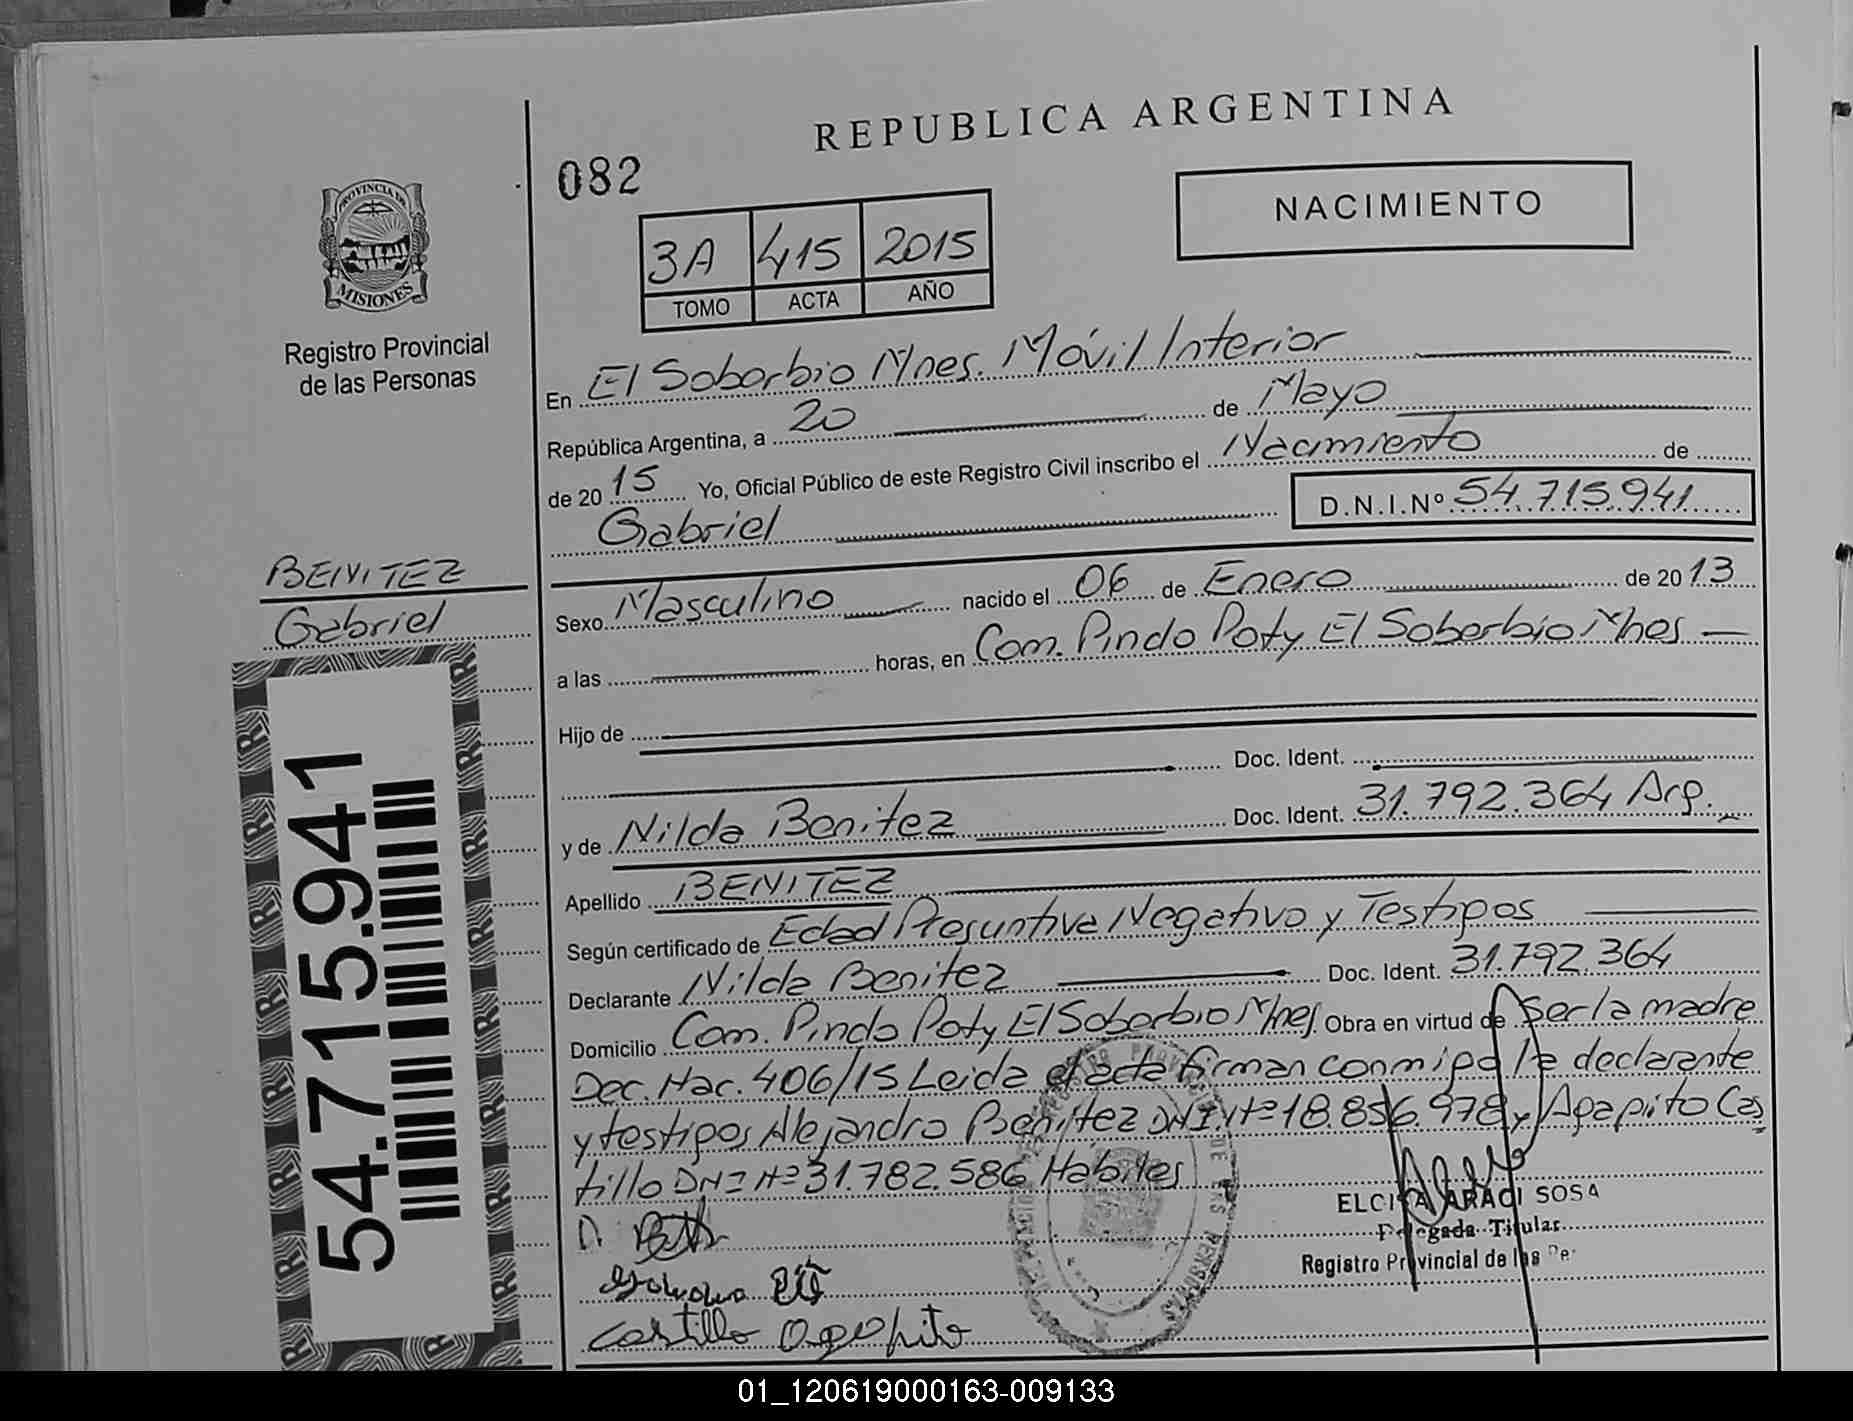 REPUBLICA ARGENTINA
082
NACIMIENTO
3A 415 2015
TOMO ACTA AÑO
PROVINCIA DE
MISIONES
Registro Provincial
de las Personas
En El Soberbio Mnes. Móvil Interior
República Argentina, a 20 de Mayo
de 2015 Yo, Oficial Público de este Registro Civil inscribo el Nacimiento de
Gabriel D.N.I.Nº 54.715.941
BENITEZ
Gabriel
Sexo Masculino nacido el 06 de Enero de 2013
a las horas, en Com. Pindo Poty El Soberbio Mnes
Hijo de
Doc. Ident.
y de Nilda Benitez Doc. Ident. 31.792.364 Arg.
Apellido BENITEZ
Según certificado de Edad Presuntiva Negativo y Testigos
Declarante Nilda Benitez Doc. Ident. 31.792.364
Domicilio Com. Pindo Poty El Soberbio Mnes Obra en virtud de Ser la madre
Dec. Nac. 406/15 Leida el acta firman conmigo la declarante
y testigos Alejandro Benitez DNI.Nº 18.856.978 y Agapito Cas
tillo DNI Nº 31.782.586 Habiles
54.715.941
ARACI SOSA
Delegada Titular
Registro Provincial de las Pe
Castillo Agapito
01_120619000163-009133